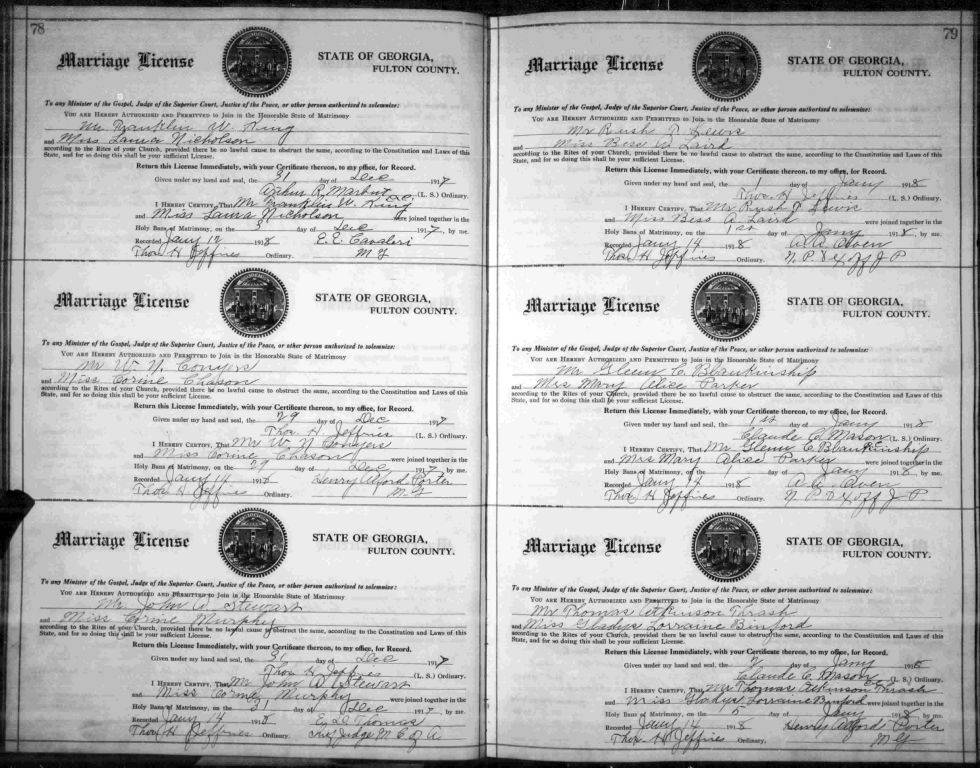 78
Marriage License
STATE OF GEORGIA,
FULTON COUNTY.
To any Minister of the Gospel, Judge of the Superior Court, Justice of the Peace, or other person authorized to solemnize:
YOU ARE HEREBY AUTHORIZED AND PERMITTED to Join in the Honorable State of Matrimony
Mr Franklin W. King
and Miss Laura Nicholson
according to the Rites of your Church, provided there be no lawful cause to obstruct the same, according to the Constitution and Laws of this
State, and for so doing this shall be your sufficient License.
Return this License Immediately, with your Certificate thereon, to my office, for Record.
Given under my hand and seal, the 31 day of Dec 1917
Arthur R. Marbut (L. S.) Ordinary.
I HEREBY CERTIFY, That Mr Franklin W. King
and Miss Laura Nicholson were joined together in the
Holy Bans of Matrimony, on the 3 day of Dec 1917, by me.
Recorded Jany 12 1918
Thos H Jeffries Ordinary. M G
Marriage License
STATE OF GEORGIA,
FULTON COUNTY.
To any Minister of the Gospel, Judge of the Superior Court, Justice of the Peace, or other person authorized to solemnize:
YOU ARE HEREBY AUTHORIZED AND PERMITTED to Join in the Honorable State of Matrimony
Mr W. N. Conyers
and Miss Corine Chason
according to the Rites of your Church, provided there be no lawful cause to obstruct the same, according to the Constitution and Laws of this
State, and for so doing this shall be your sufficient License.
Return this License Immediately, with your Certificate thereon, to my office, for Record.
Given under my hand and seal, the 29 day of Dec 1917
Thos H Jeffries (L. S.) Ordinary.
I HEREBY CERTIFY, That Mr W N Conyers
and Miss Corine Chason were joined together in the
Holy Bans of Matrimony, on the 29 day of Dec 1917 by me.
Recorded Jany 14 1918 Henry Alford Porter
Thos H Jeffries Ordinary. M G
Marriage License
STATE OF GEORGIA,
FULTON COUNTY.
To any Minister of the Gospel, Judge of the Superior Court, Justice of the Peace, or other person authorized to solemnize:
YOU ARE HEREBY AUTHORIZED AND PERMITTED to Join in the Honorable State of Matrimony
Mr John A. Stewart
and Miss Corine Murphy
according to the Rites of your Church, provided there be no lawful cause to obstruct the same, according to the Constitution and Laws of this
State, and for so doing this shall be your sufficient License.
Return this License Immediately, with your Certificate thereon, to my office, for Record.
Given under my hand and seal, the 31 day of Dec 1917
Thos H Jeffries (L. S.) Ordinary.
I HEREBY CERTIFY, That Mr John A Stewart
and Miss Corine Murphy were joined together in the
Holy Bans of Matrimony, on the 31 day of Dec 1917 by me.
Recorded Jany 14 1918 E. D. Thomas
Thos H Jeffries Ordinary. Judge M C of A
79
Marriage License
STATE OF GEORGIA,
FULTON COUNTY.
To any Minister of the Gospel, Judge of the Superior Court, Justice of the Peace, or other person authorized to solemnize:
YOU ARE HEREBY AUTHORIZED AND PERMITTED to Join in the Honorable State of Matrimony
Mr Rush J Lewis
and Miss Bess A Laird
according to the Rites of your Church, provided there be no lawful cause to obstruct the same, according to the Constitution and Laws of this
State, and for so doing this shall be your sufficient License.
Return this License Immediately, with your Certificate thereon, to my office, for Record.
Given under my hand and seal, the 1 day of Jany 1918
Thos H Jeffries (L. S.) Ordinary.
I HEREBY CERTIFY, That Mr Rush J Lewis
and Miss Bess A. Laird were joined together in the
Holy Bans of Matrimony, on the 1st day of Jany 1918, by me.
Recorded Jany 14 1918 A. A. Owen
Thos H Jeffries Ordinary. N. P. & Ex off J P
Marriage License
STATE OF GEORGIA,
FULTON COUNTY.
To any Minister of the Gospel, Judge of the Superior Court, Justice of the Peace, or other person authorized to solemnize:
YOU ARE HEREBY AUTHORIZED AND PERMITTED to Join in the Honorable State of Matrimony
Mr Glenn C. Blankinship
and Mrs Mary Alice Parker
according to the Rites of your Church, provided there be no lawful cause to obstruct the same, according to the Constitution and Laws of this
State, and for so doing this shall be your sufficient License.
Return this License Immediately, with your Certificate thereon, to my office, for Record.
Given under my hand and seal, the 1st day of Jany 1918
Claude C Mason (L. S.) Ordinary.
I HEREBY CERTIFY, That Mr Glenn C Blankinship
and Mrs Mary Alice Parker were joined together in the
Holy Bans of Matrimony, on the 1 day of Jany 1918, by me.
Recorded Jany 14 1918 A. A. Owen
Thos H Jeffries Ordinary. N. P. & Ex off J P
Marriage License
STATE OF GEORGIA,
FULTON COUNTY.
To any Minister of the Gospel, Judge of the Superior Court, Justice of the Peace, or other person authorized to solemnize:
YOU ARE HEREBY AUTHORIZED AND PERMITTED to Join in the Honorable State of Matrimony
Mr Thomas Atkinson Thrash
and Miss Gladys Lorraine Binford
according to the Rites of your Church, provided there be no lawful cause to obstruct the same, according to the Constitution and Laws of this
State, and for so doing this shall be your sufficient License.
Return this License Immediately, with your Certificate thereon, to my office, for Record.
Given under my hand and seal, the 2 day of Jany 1918
Claude C. Mason (L. S.) Ordinary.
I HEREBY CERTIFY, That Mr Thomas Atkinson Thrash
and Miss Gladys Lorraine Binford were joined together in the
Holy Bans of Matrimony, on the 5 day of Jany 1918 by me.
Recorded Jany 14 1918 Henry Alford Porter
Thos H Jeffries Ordinary. M G